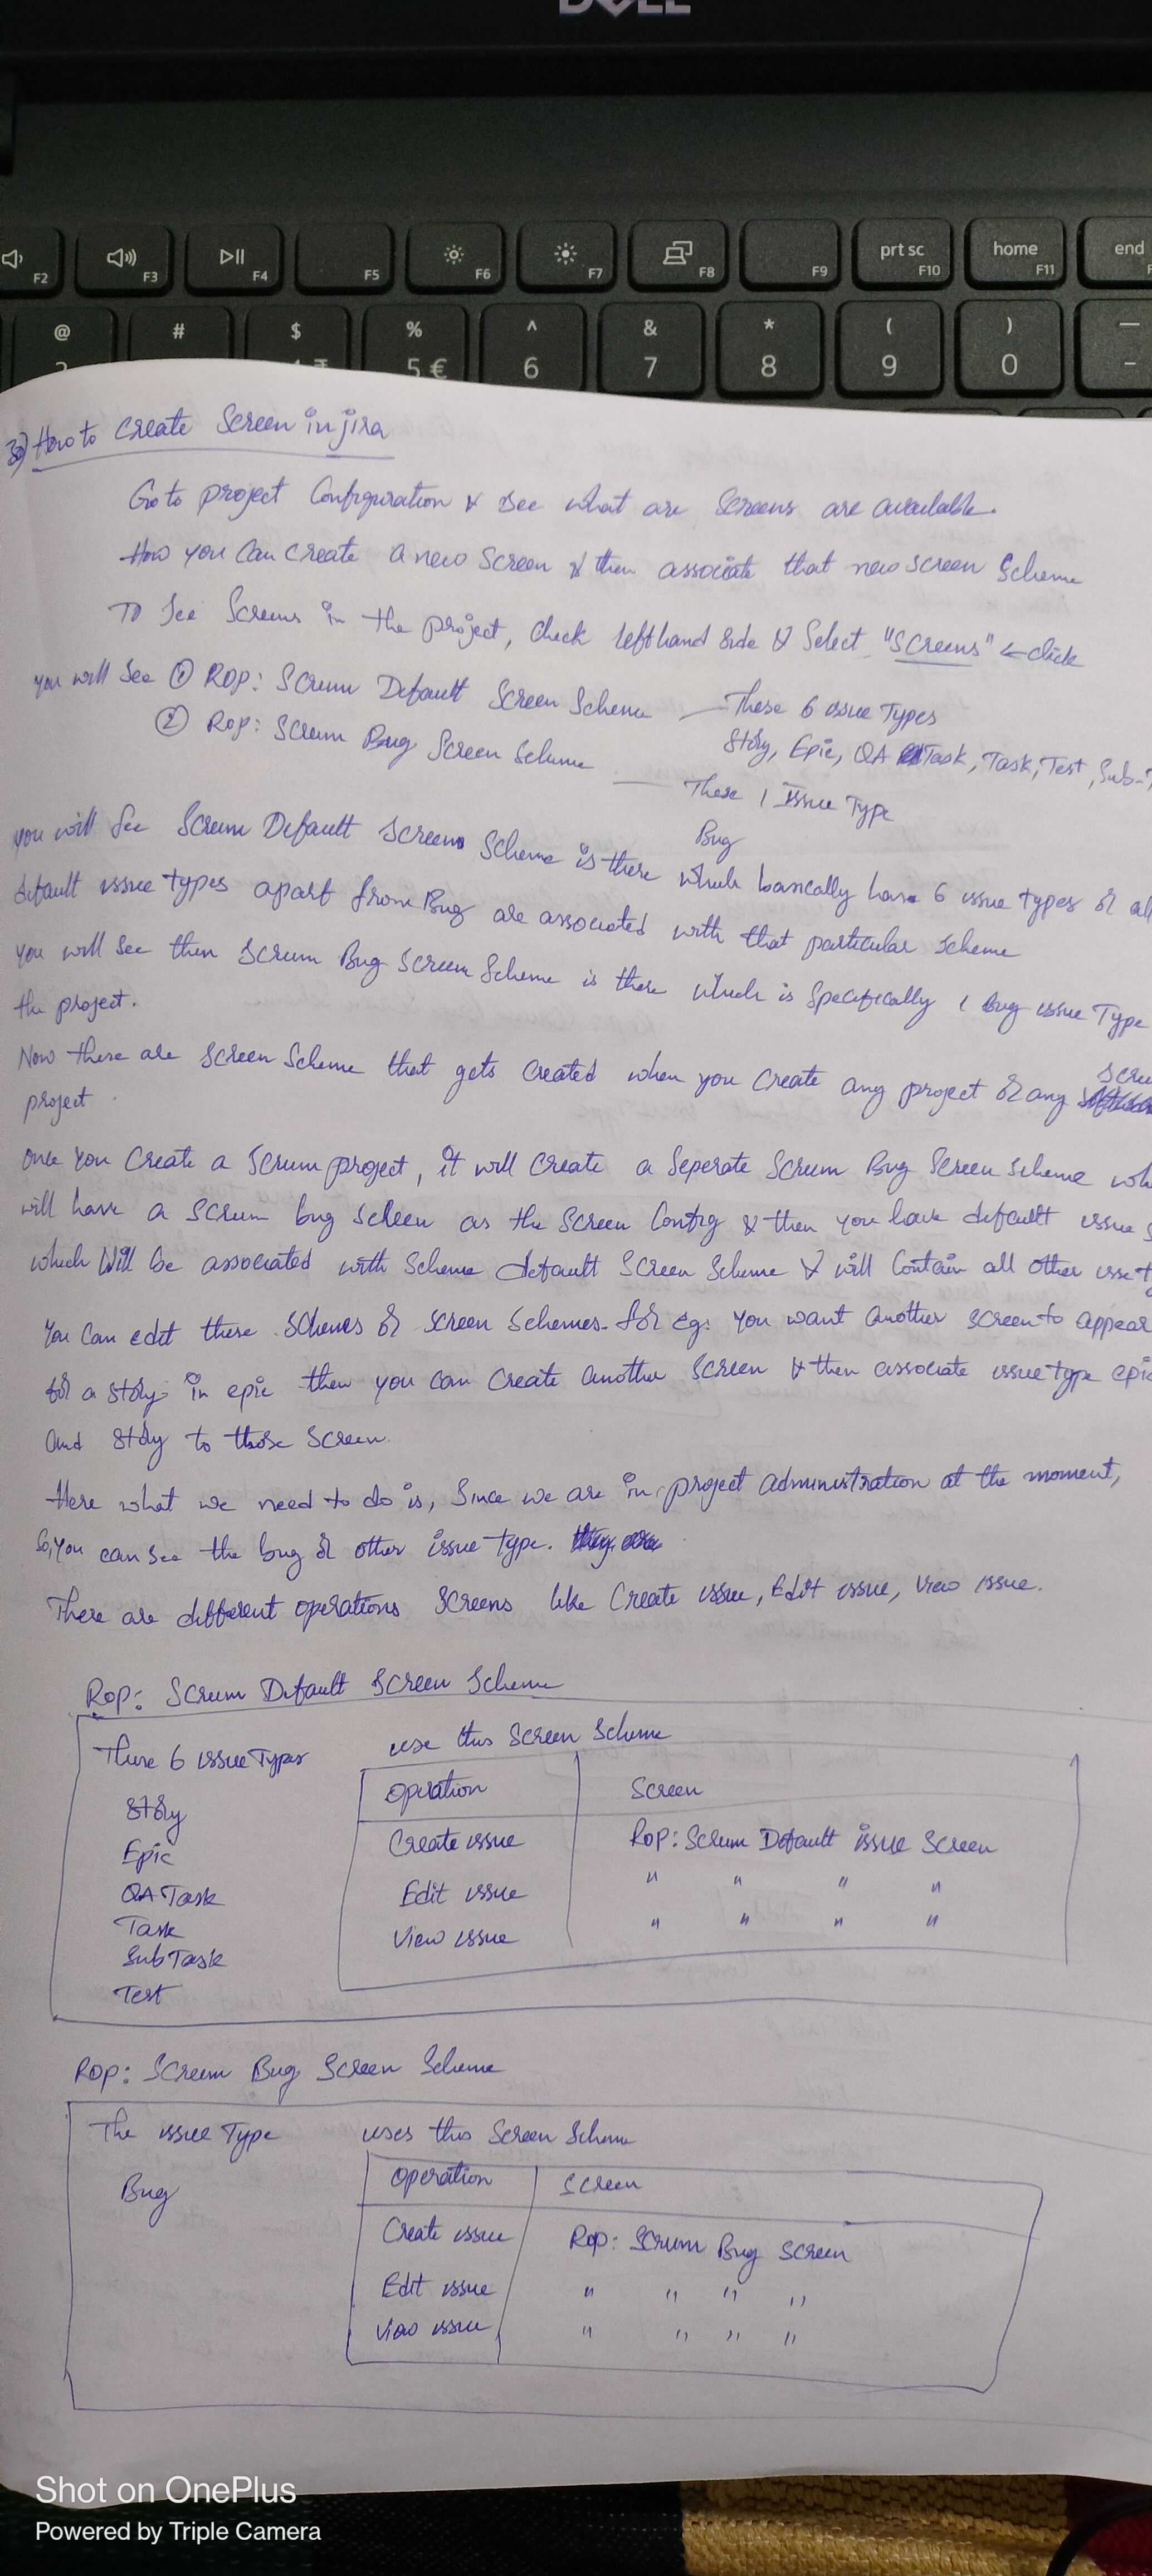 DELL
F2 F3 F4 F5 F6 F7 F8 F9 prt sc F10 home F11 end
@ # $ % ^ & * ( ) —
5 € 6 7 8 9 0 -
30) How to Create Screen in jira
Go to project Configuration & see what are Screens are available.
How you Can create a new Screen & then associate that new screen Scheme
To See Screens in the project, check left hand side & Select "Screens" ← click
you will see ① Rop: Scrum Default Screen Scheme — These 6 issue Types
Story, Epic, QA Task, Task, Test, Sub-T
② Rop: Scrum Bug Screen Scheme — These 1 Issue Type
Bug
you will see Scrum Default Screens Scheme is there which basically have 6 issue types or all
default issue types apart from Bug are associated with that particular scheme
you will see then Scrum Bug Screen Scheme is there which is Specifically 1 Bug issue Type
the project.
Now these are Screen Scheme that gets created when you create any project or any Scru
project.
once you Create a Scrum project, it will create a Seperate Scrum Bug Screen Scheme whi
will have a Scrum bug screen as the Screen Config & then you have default issue S
which Will be associated with Scheme default Screen Scheme & will Contain all other isse ty
You Can edit these Schemes or screen Schemes. for eg: you want another screen to appear
for a story in epic then you can Create another Screen & then associate issue type epic
and story to those Screen.
Here what we need to do is, Since we are in project administration at the moment,
So, you can see the bug or other issue type.
There are different operations Screens like Create issue, Edit issue, View issue.
Rop: Scrum Default Screen Scheme
These 6 issue Types use this Screen Scheme
Operation Screen
Story
Create issue Rop: Scrum Default issue Screen
Epic
Edit issue " " " "
QA Task
View issue " " " "
Task
Sub Task
Test
Rop: Scrum Bug Screen Scheme
The issue Type uses this Screen Scheme
Bug
Operation Screen
Create issue Rop: Scrum Bug Screen
Edit issue " " " "
View issue " " " "
Shot on OnePlus
Powered by Triple Camera